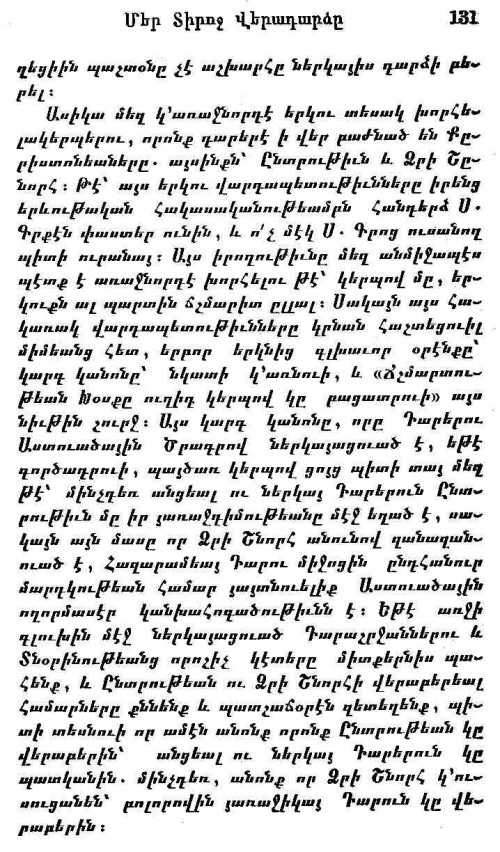 Մեր Տիրոջ Վերադարձը 131
ղեցիին պաշտօնը չէ աշխարհը ներկայիս դարձի բե-
րել։
Ասիկա մեզ կ'առաջնորդէ երկու տեսակ խորհե-
լակերպերու, որոնք դարերէ ի վեր բաժնած են Քը-
րիստոնեաները. այսինքն՝ Ընտրութիւն և Ձրի Շը-
նորհ։ Թէ՝ այս երկու վարդապետութիւնները իրենց
երևութական հակասականութեամբն հանդերձ Ս.
Գրքէն փաստեր ունին, և ո՛չ մէկ Ս. Գրոց ուսանող
պիտի ուրանայ։ Այս իրողութիւնը մեզ անմիջապէս
պէտք է առաջնորդէ խորհելու թէ՝ կերպով մը, եր-
կուքն ալ պարտին ճշմարիտ ըլլալ։ Սակայն այս հա-
կառակ վարդապետութիւնները կրնան հաշտեցուիլ
միմեանց հետ, երբոր երկնից գլխաւոր օրէնքը՝
կարգ կանոնը՝ նկատի կ'առնուի, և «Ճշմարտու-
թեան Խօսքը ուղիղ կերպով կը բացատրուի» այս
նիւթին շուրջ։ Այս կարգ կանոնը, որը Դարերու
Աստուածային Ծրագրով ներկայացուած է, եթէ
գործադրուի, պայծառ կերպով ցոյց պիտի տայ մեզ
թէ՝ մինչդեռ անցեալ ու ներկայ Դարերուն Ընտ-
րութիւն մը իր յառաջդիմութեանը մէջ եղած է, սա-
կայն այն մասը որ Ձրի Շնորհ անունով զանազան-
ուած է, Հազարամեայ Դարու միջոցին ընդհանուր
մարդկութեան համար յայտնուելիք Աստուածային
ողորմասէր կանխահոգածութիւնն է։ Եթէ առջի
գլուխին մէջ ներկայացուած Դարաշրջաններու և
Տնօրինութեանց որոշիչ կէտերը միտքերնիս պա-
հենք, և Ընտրութեան ու Ձրի Շնորհի վերաբերեալ
համարները քննենք և պատշաճօրէն զետեղենք, պի-
տի տեսնուի որ ամէն անոնք որոնք Ընտրութեան կը
վերաբերին՝ անցեալ ու ներկայ Դարերուն կը
պատկանին. մինչդեռ, անոնք որ Ձրի Շնորհ կ'ու-
սուցանեն՝ բոլորովին յառաջիկայ Դարուն կը վե-
րաբերին։